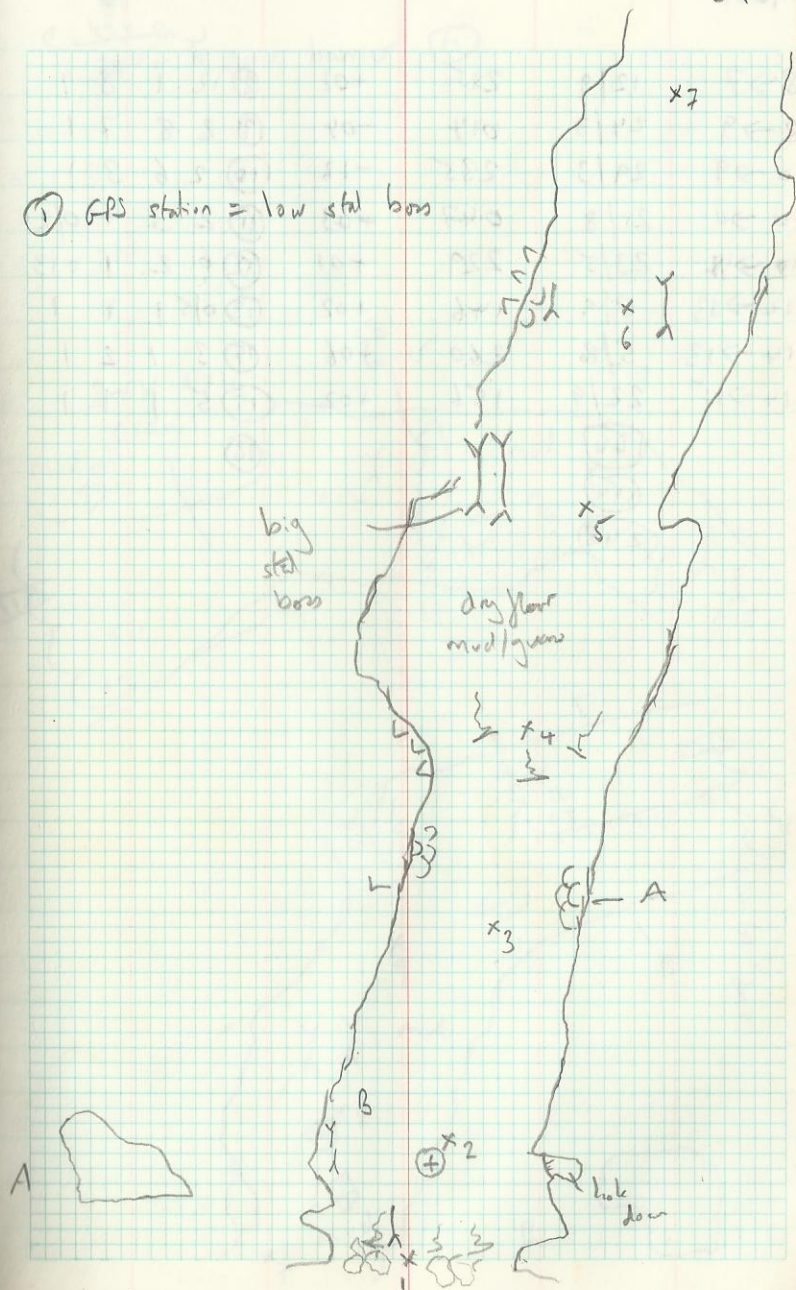 ① GPS station = low stal boss
x7
x
6
x5
big
stal
boss
dry floor
mud/guano
x4
A
x3
B
x2
A
hole
down
x
1